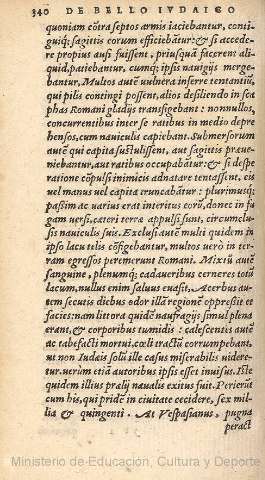 340 DE BELLO IVDAICO
quoniam cõtra septos armis iaciebantur, conti-
guiq; sagittis eorum efficiebãtur: & si accede-
re propius ausi fuissent, priusquã facerent ali-
quid, patiebantur, cumq; ipsis nauigijs merge-
bantur. Multos autẽ uulnera inferre tentantiũ,
qui pilis contingi possent, alios desiliendo in sca
phas Romani gladijs transfigebant: nonnullos,
concurrentibus inter se ratibus in medio depre
hensos, cum nauiculis capiebant. Submersorum
autẽ qui capita sustulissent, aut sagittis praue-
niebantur, aut ratibus occupabãtur: & si despe
ratione cõpulsi inimicis adnatare tentassent, eis
uel manus uel capita truncabãtur: plurimusq;
passim ac uarius erat interitus eorũ, donec in fu
gam uersi, cæteri terræ appulsi sunt, circumclu-
sis nauiculis suis. Exclusi autẽ multi quidem in
ipso lacu telis cõfigebantur, multos uerò in ter-
ram egressos peremerunt Romani. Mixtũ autẽ
sanguine, plenumq; cadaueribus cerneres totũ
lacum, nullus enim saluus euasit. Acerbus au-
tem secutis diebus odor illã regionẽ oppressit et
facies: nam littora quidẽ naufragijs simul plena
erant, & corporibus tumidis: calescentis autẽ
ac tabefacti mortui, cœli tractũ corrumpebant,
ut non Iudæis solũ ille casus miserabilis uidere-
tur, uerùm etiã autoribus ipsis esset inuisus. Iste
quidem illius prælij naualis exitus fuit. Perierũt
cum his, qui pridẽ in ciuitate cecidere, sex mil-
lia & quingenti. At Vespasianus, pugna
peract
Ministerio de Educación, Cultura y Deporte